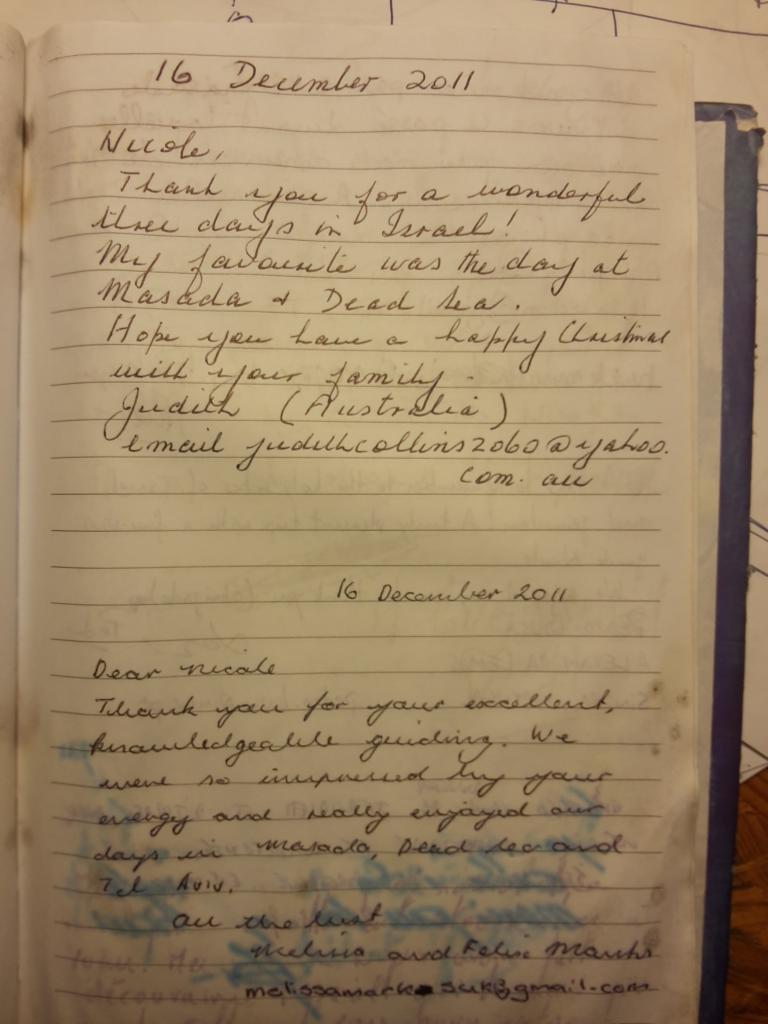 16 December 2011
Nicole,
Thank you for a wonderful
three days in Israel!
My favourite was the day at
Masada & Dead Sea.
Hope you have a happy Christmas
with your family.
Judith (Australia)
email judithcollins2060@yahoo.
com.au
16 December 2011
Dear Nicole
Thank you for your excellent,
knowledgeable guiding. We
were so impressed by your
energy and really enjoyed our
days in Masada, Dead Sea and
Tel Aviv.
All the best
Melissa and Felix Marks